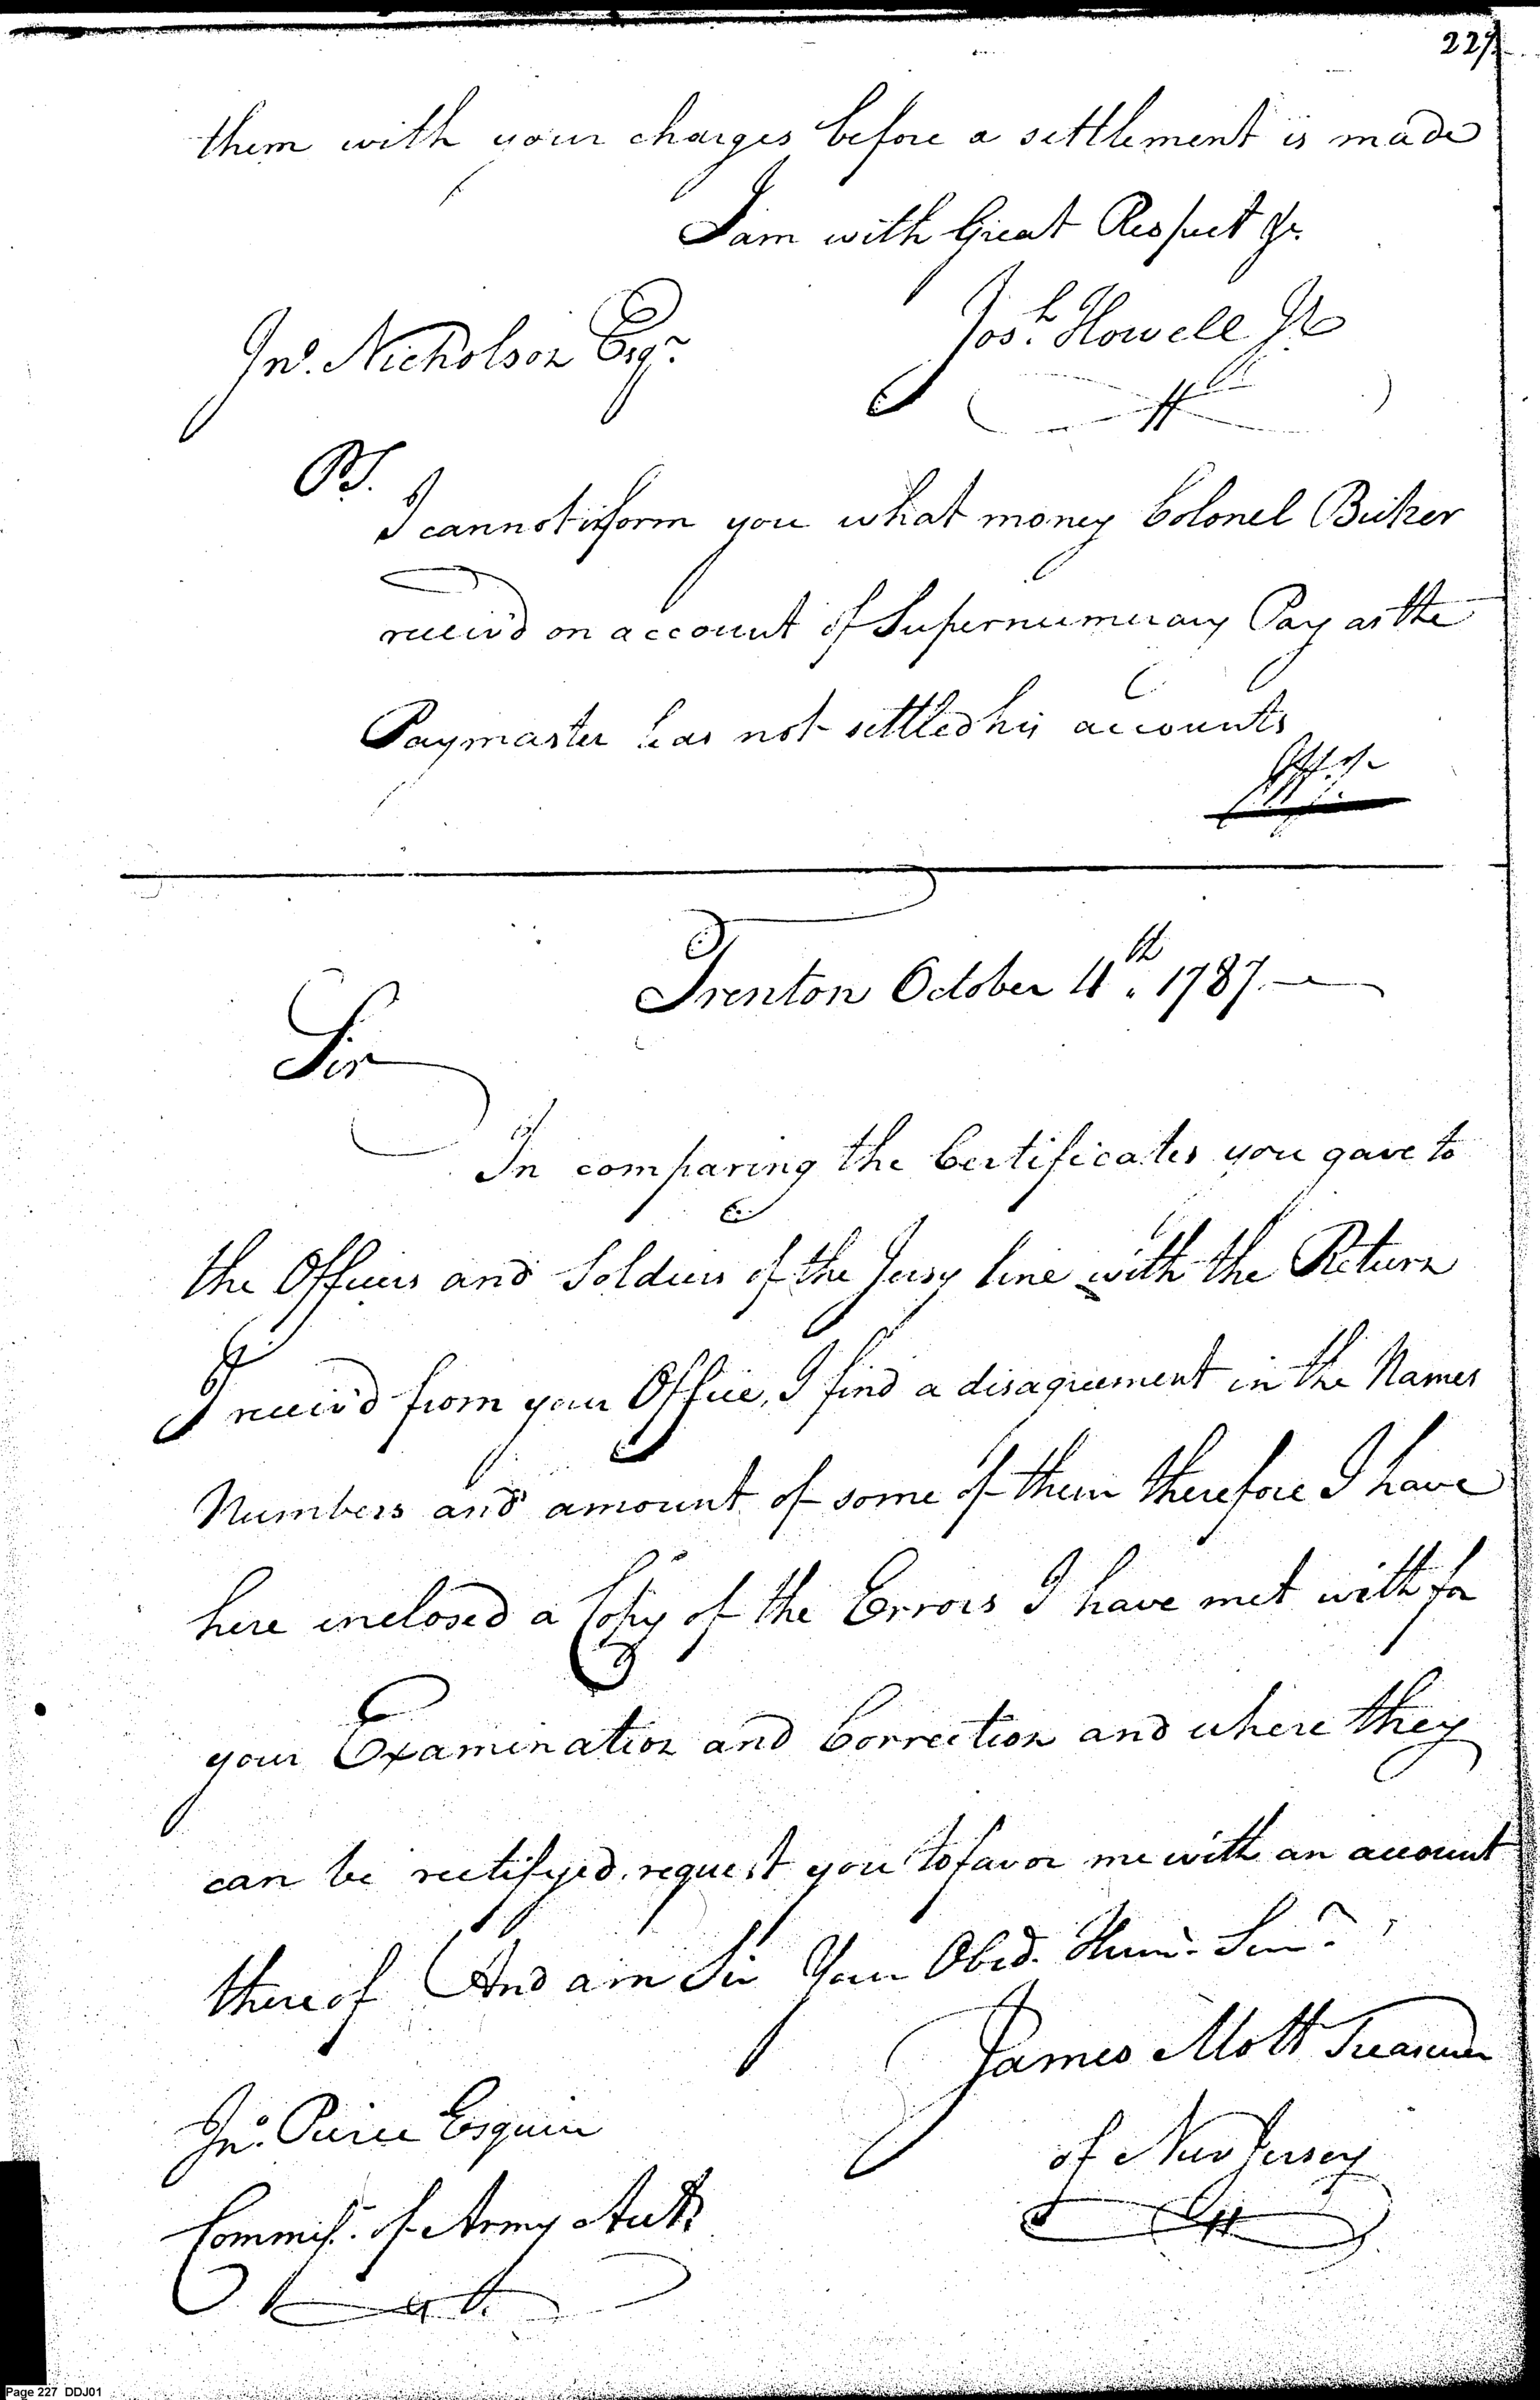 227
them with your charges before a settlement is made
I am with Great Respect &c.
Jos.h Howell Jr
Jno. Nicholson Esqr.
PS.
I cannot inform you what money Colonel Bicker
receiv'd on account of Supernumerary Pay as the
Paymaster has not settled his accounts
Trenton October 4th. 1787.
Sir
In comparing the Certificates you gave to
the Officers and Soldiers of the Jersy line with the Return
I receiv'd from your Office, I find a disagreement in the Names
Numbers and amount of some of them therefore I have
here inclosed a Copy of the Errors I have met with for
your Examination and Correction and where they
can be rectifyed, request you to favor me with an account
thereof And am Sir Your Obed. Hum. Serv.
James Mott Treasurer
of New Jersey
Jno. Pierce Esquire
Commisr. of Army Acts
Page 227 DDJ01